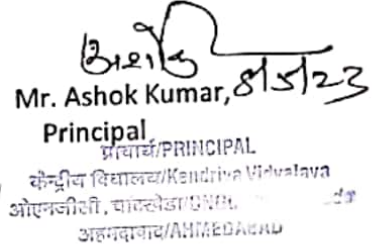 अशोक
8/5/23
Mr. Ashok Kumar,
Principal
प्राचार्य/PRINCIPAL
केन्द्रीय विद्यालय/Kendriya Vidyalaya
ओएनजीसी, चांदखेडा/ONGC
अहमदाबाद/AHMEDABAD